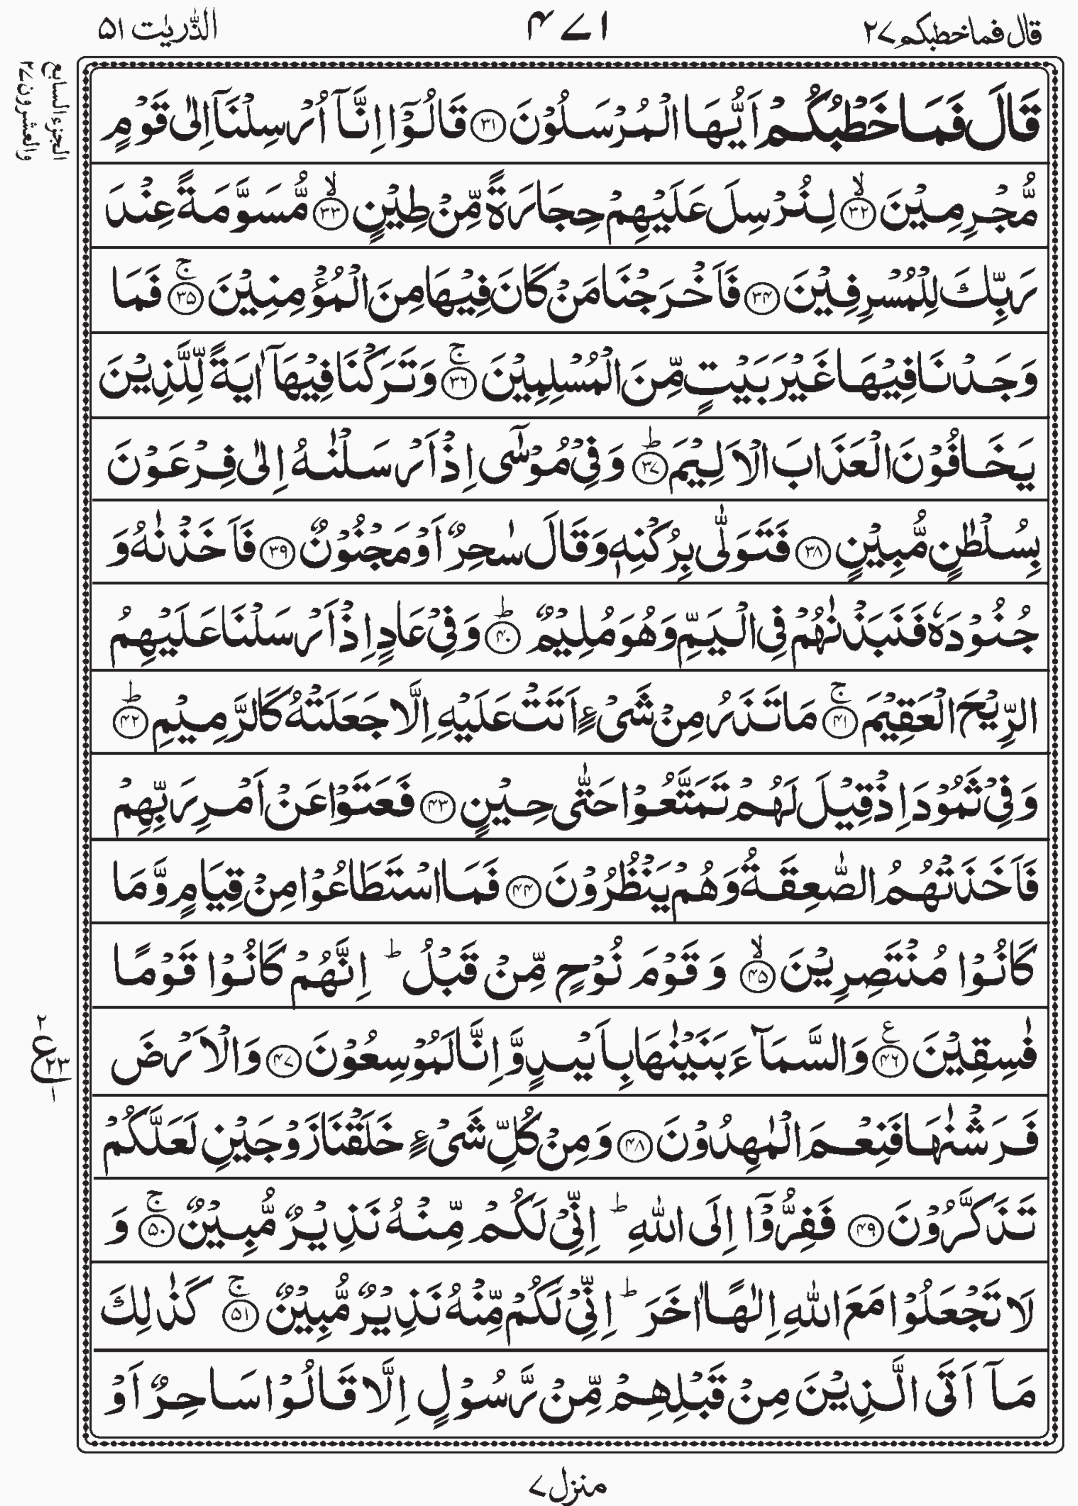 قال فما خطبكم ٢٧
٤٧١
الذّٰريٰت ٥١
الجزء السابع والعشرون ٢٧
قَالَ فَمَا خَطْبُكُمْ اَيُّهَا الْمُرْسَلُوْنَ ۝٣١ قَالُوْٓا اِنَّآ اُرْسِلْنَآ اِلٰى قَوْمٍ
مُّجْرِمِيْنَ ۙ۝٣٢ لِنُرْسِلَ عَلَيْهِمْ حِجَارَةً مِّنْ طِيْنٍ ۙ۝٣٣ مُّسَوَّمَةً عِنْدَ
رَبِّكَ لِلْمُسْرِفِيْنَ ۝٣٤ فَاَخْرَجْنَا مَنْ كَانَ فِيْهَا مِنَ الْمُؤْمِنِيْنَ ۚ۝٣٥ فَمَا
وَجَدْنَا فِيْهَا غَيْرَ بَيْتٍ مِّنَ الْمُسْلِمِيْنَ ۚ۝٣٦ وَتَرَكْنَا فِيْهَآ اٰيَةً لِّلَّذِيْنَ
يَخَافُوْنَ الْعَذَابَ الْاَلِيْمَ ؕ۝٣٧ وَفِيْ مُوْسٰٓى اِذْ اَرْسَلْنٰهُ اِلٰى فِرْعَوْنَ
بِسُلْطٰنٍ مُّبِيْنٍ ۝٣٨ فَتَوَلّٰى بِرُكْنِهٖ وَقَالَ سٰحِرٌ اَوْ مَجْنُوْنٌ ۝٣٩ فَاَخَذْنٰهُ وَ
جُنُوْدَهٗ فَنَبَذْنٰهُمْ فِي الْيَمِّ وَهُوَ مُلِيْمٌ ؕ۝٤٠ وَفِيْ عَادٍ اِذْ اَرْسَلْنَا عَلَيْهِمُ
الرِّيْحَ الْعَقِيْمَ ۚ۝٤١ مَا تَذَرُ مِنْ شَيْءٍ اَتَتْ عَلَيْهِ اِلَّا جَعَلَتْهُ كَالرَّمِيْمِ ؕ۝٤٢
وَفِيْ ثَمُوْدَ اِذْ قِيْلَ لَهُمْ تَمَتَّعُوْا حَتّٰى حِيْنٍ ۝٤٣ فَعَتَوْا عَنْ اَمْرِ رَبِّهِمْ
فَاَخَذَتْهُمُ الصّٰعِقَةُ وَهُمْ يَنْظُرُوْنَ ۝٤٤ فَمَا اسْتَطَاعُوْا مِنْ قِيَامٍ وَّمَا
كَانُوْا مُنْتَصِرِيْنَ ۙ۝٤٥ وَقَوْمَ نُوْحٍ مِّنْ قَبْلُ ؕ اِنَّهُمْ كَانُوْا قَوْمًا
فٰسِقِيْنَ ۧ۝٤٦ وَالسَّمَآءَ بَنَيْنٰهَا بِاَيْىدٍ وَّاِنَّا لَمُوْسِعُوْنَ ۝٤٧ وَالْاَرْضَ
فَرَشْنٰهَا فَنِعْمَ الْمٰهِدُوْنَ ۝٤٨ وَمِنْ كُلِّ شَيْءٍ خَلَقْنَا زَوْجَيْنِ لَعَلَّكُمْ
تَذَكَّرُوْنَ ۝٤٩ فَفِرُّوْٓا اِلَى اللّٰهِ ؕ اِنِّيْ لَكُمْ مِّنْهُ نَذِيْرٌ مُّبِيْنٌ ۚ۝٥٠ وَ
لَا تَجْعَلُوْا مَعَ اللّٰهِ اِلٰهًا اٰخَرَ ؕ اِنِّيْ لَكُمْ مِّنْهُ نَذِيْرٌ مُّبِيْنٌ ۚ۝٥١ كَذٰلِكَ
مَآ اَتَى الَّذِيْنَ مِنْ قَبْلِهِمْ مِّنْ رَّسُوْلٍ اِلَّا قَالُوْا سَاحِرٌ اَوْ
٢ ع ٢٣ ١
منزل ٧